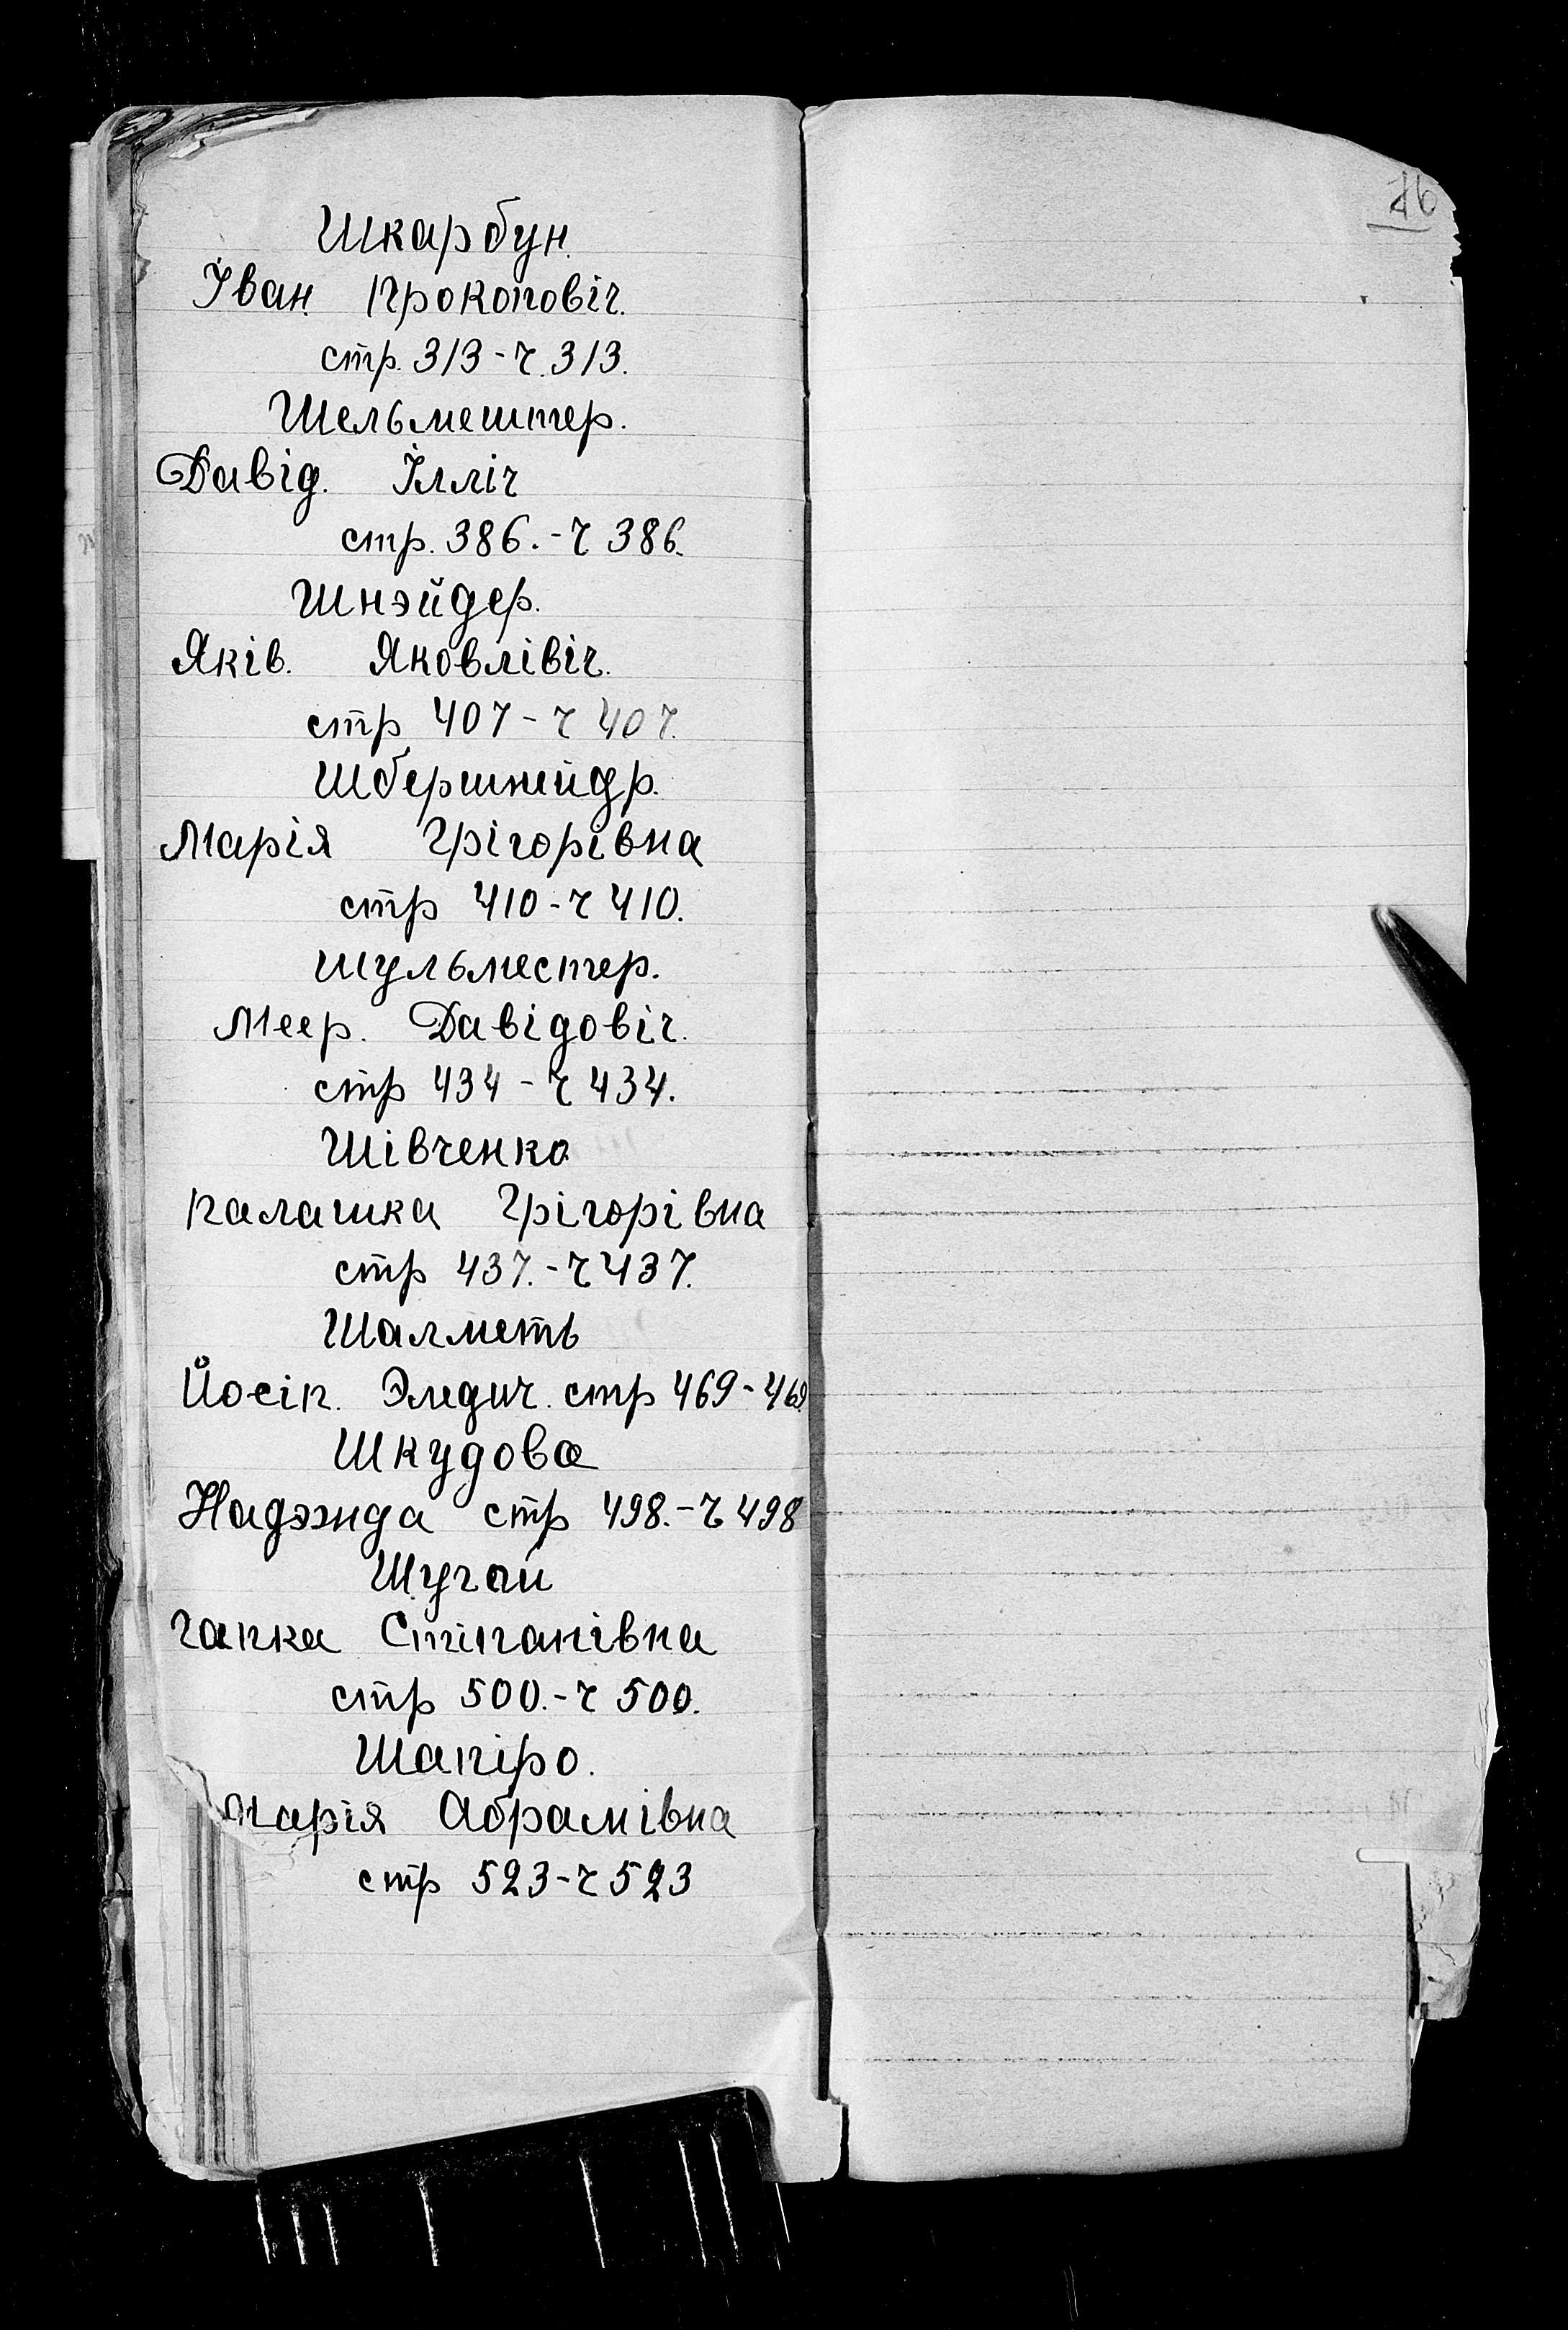 76
Шкарбун.
Іван. Прокоповіч.
стр. 313-ч. 313.
Шельмештер.
Давід. Ілліч
стр. 386.-ч 386.
Шнэйдер.
Яків. Яковлівіч.
стр 407-ч 407.
Шбершнейдр.
Марія Грігорівна
стр 410-ч 410.
Шульместер.
Меер. Давідовіч.
стр 434-ч 434.
Шівченко
Палашка Грігорівна
стр 437.-ч 437.
Шалметь
Йосіп. стр 469-469.
Шкудова
Надэжда стр 498.-ч 498
Шугай
Гапка Стіпанівна
стр 500.-ч 500.
Шапіро.
Марія Абрамівна
стр 523-ч 523